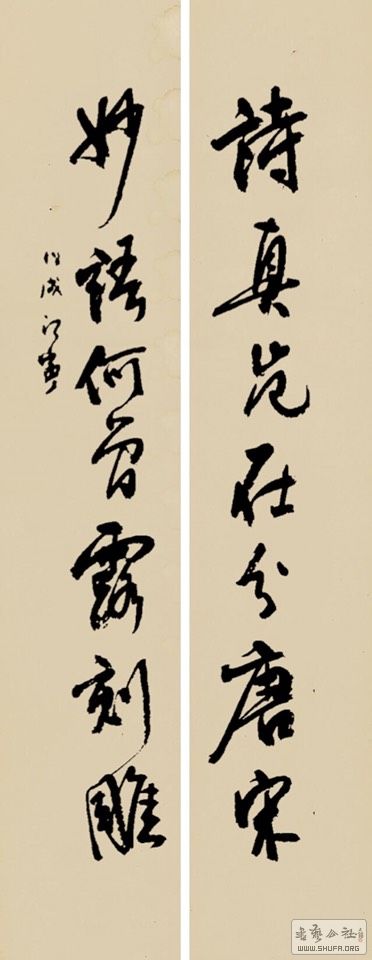 詩真豈在分唐宋
妙語何曾露刻雕
书艺公社
WWW.SHUFA.ORG